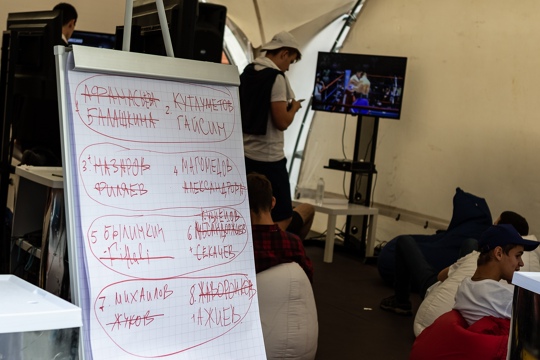 1 АФАНАСЬЕВ
БАЛАШКИНА
2 КУТЛУМЕТОВ
ГАЙСИМ
3 НАЗАРОВ
ФИЛЯЕВ
4 МАГОМЕДОВ
АЛЕКСАНДРОВ
5 БЫЛИМКИН
6
СЕКАЧЕВ
7 МИХАЙЛОВ
ЖУКОВ
8. ЖАВОРОНКОВ
АЖИЕВ